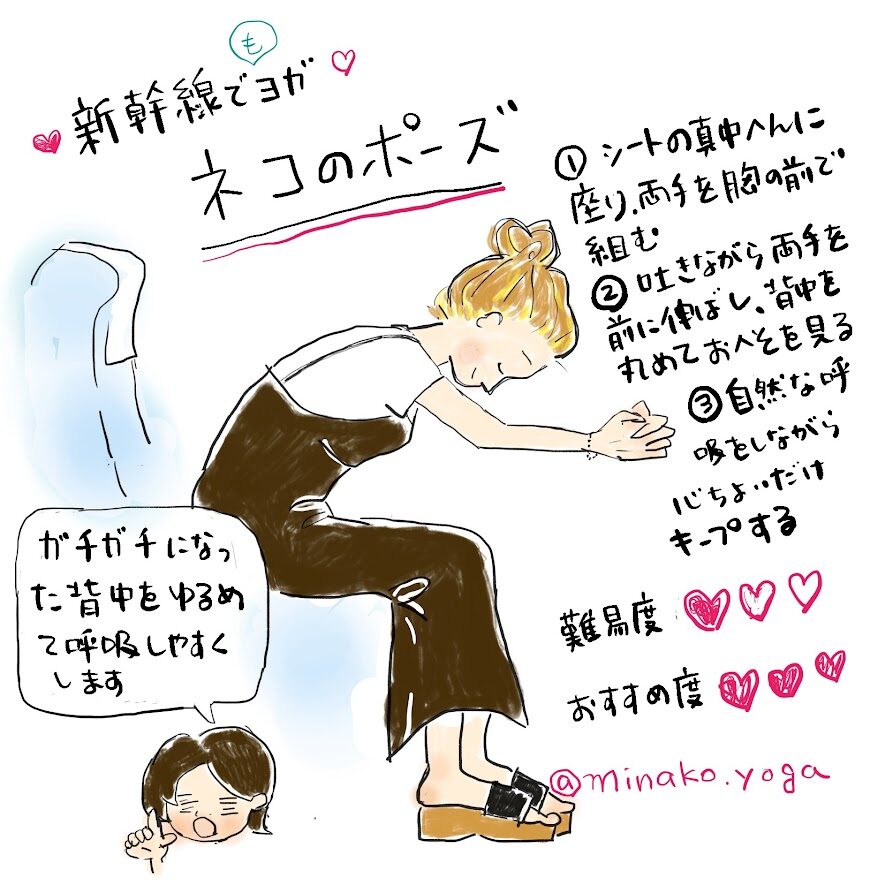 も
新幹線でヨガ
ネコのポーズ
① シートの真中へんに
座り、両手を胸の前で
組む
② 吐きながら両手を
前に伸ばし、背中を
丸めておへそを見る
③ 自然な呼
吸をしながら
心ちよいだけ
キープする
ガチガチになっ
た背中をゆるめ
て呼吸しやすく
します
難易度
おすすめ度
@minako.yoga